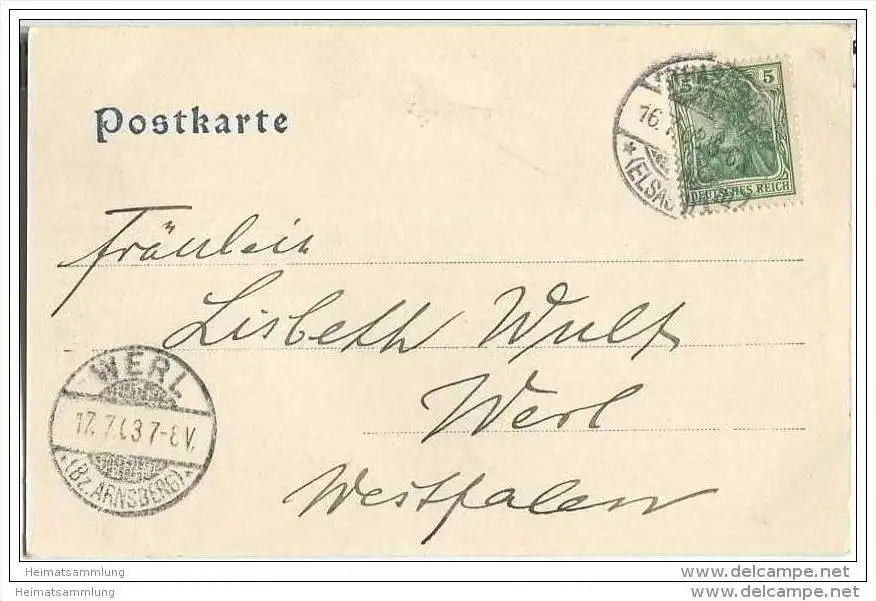 Postkarte
5 5
DEUTSCHES REICH
16.
(ELSA
Fräulein
Lisbeth Wulf
Werl
Westfalen
WERL
17.7.03 7-8 V.
*(BZ. ARNSBERG)*
Heimatsammlung www.delcampe.net
Heimatsammlung www.delcampe.net